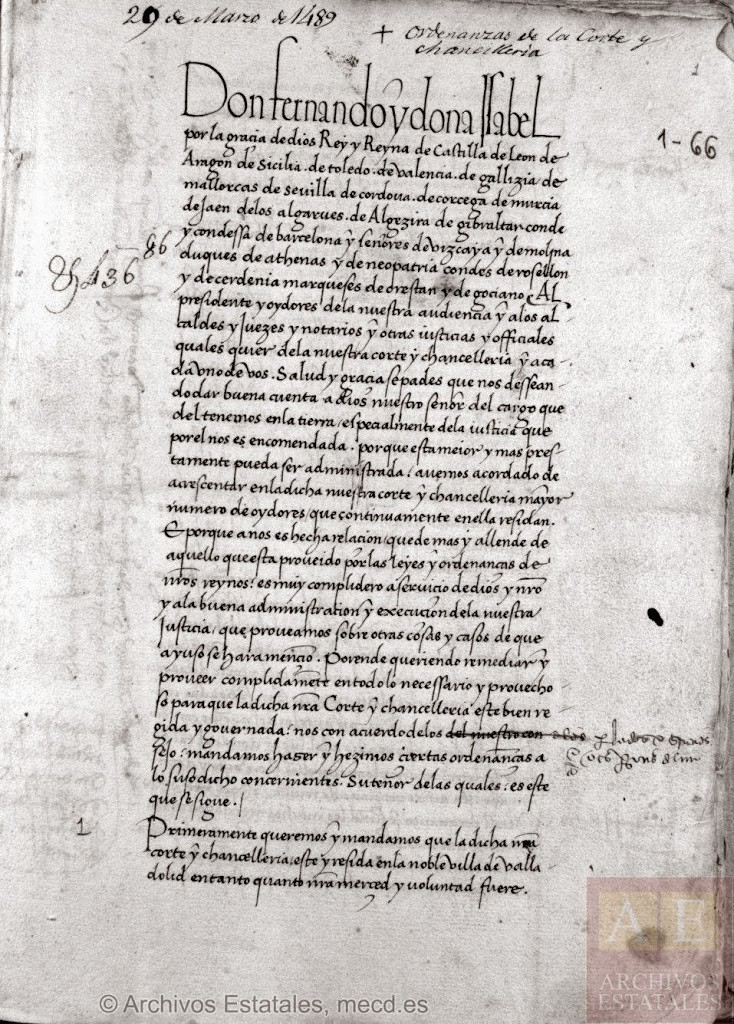 29 de Marzo de 1489
+ Ordenanzas de la Corte y
chancilleria
1
1-66
Don fernando y dona ysabel
por la gracia de dios Rey y Reyna de Castilla de Leon de
Aragon de Sicilia . de toledo . de valencia . de gallizia de
mallorcas de sevilla de cordova . de corcega de murcia
de Jaen de los algarves . de Algezira de gibraltar conde
y condessa de barcelona y señores de vizcaya y de molina
duques de athenas y de neopatria condes de rosellon
y de cerdenia marqueses de orestan y de gociano . AL
presidente y oydores de la nuestra audiencia y a los al
caldes y Juezes y notarios y otras iusticias y officiales
quales quier de la nuestra corte y chancelleria y a ca
da uno de vos . Salud y gracia sepades que nos dessean
do dar buena cuenta a dios nuestro señor del cargo que
del tenemos en la tierra / especialmente de la iusticia que
por el nos es encomendada . porque esta meior y mas pres
tamente pueda ser administrada / avemos acordado de
acrescentar en la dicha nuestra corte y chancelleria mayor
numero de oydores / que continuamente en ella residan .
E porque a nos es hecha relacion / que de mas y allende de
aquello que esta proveido por las leyes y ordenanças de
nros reynos : es muy complidero a servicio de dios y nro
y a la buena administration y execucion de la nuestra
Justicia , que proveamos sobre otras cosas y casos de que
ayuso se hara mencio . Porende queriendo remediar y
proveer complidamete en todo lo necessario y provecho
so para que la dicha nra Corte y chancelleria este bien re
gida y governada : nos con acuerdo de los del nuestro con
sejo : mandamos hazer y hezimos ciertas ordenanças a
lo suso dicho concernientes . Su tenor de las quales : es este
que se sigue . /
1
Primeramente queremos y mandamos que la dicha nra
corte y chancelleria este y resida en la noble villa de valla
dolid en tanto quanto nra merced y voluntad fuere .
© Archivos Estatales, mecd.es
AE
ARCHIVOS
ESTATALES